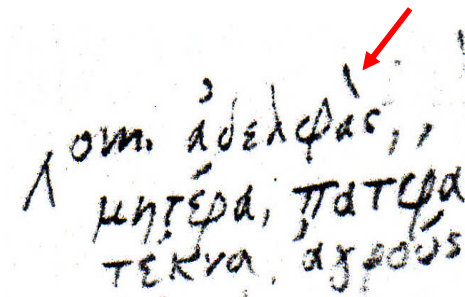 om. ἀδελφὰς,,
μητέρα, πατέρα
τέκνα, ἀγρούς